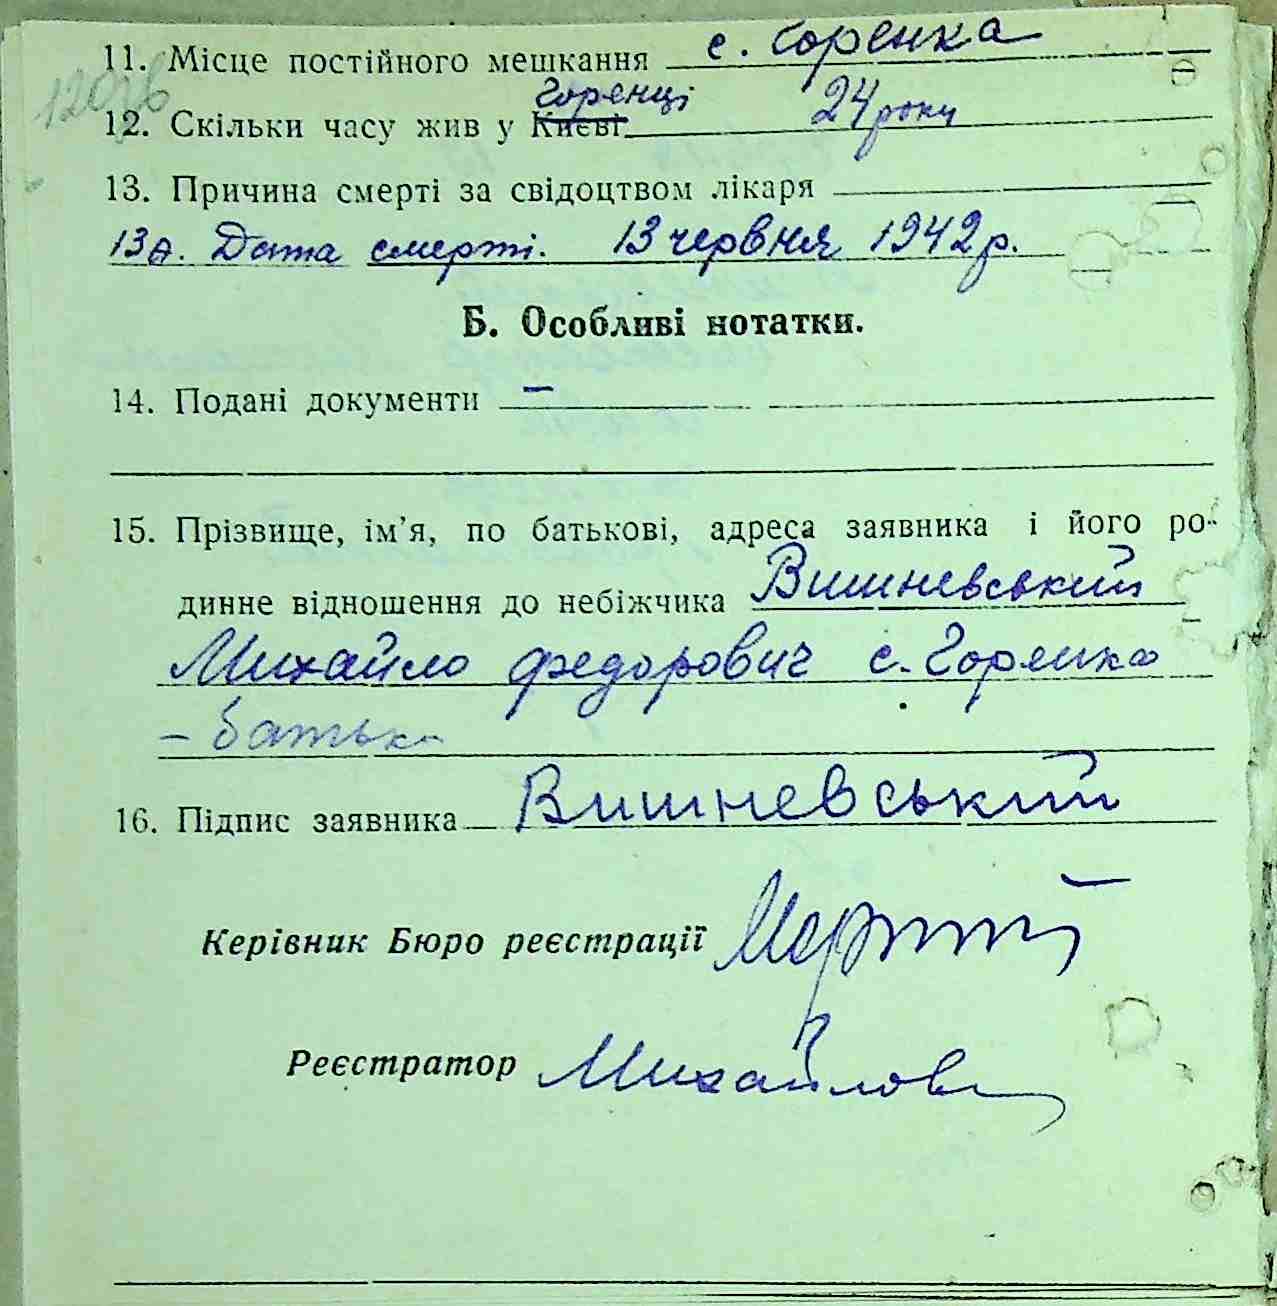 11. Місце постійного мешкання с. Горенка
Горенці
12. Скільки часу жив у Києві 24 роки
13. Причина смерті за свідоцтвом лікаря
13а. Дата смерті. 13 червня 1942 р.
Б. Особливі нотатки.
14. Подані документи –
15. Прізвище, ім'я, по батькові, адреса заявника і його ро-
динне відношення до небіжчика Вишневський
Михайло Федорович с. Горенка
– батько
16. Підпис заявника Вишневський
Керівник Бюро реєстрації
Реєстратор Михайлов